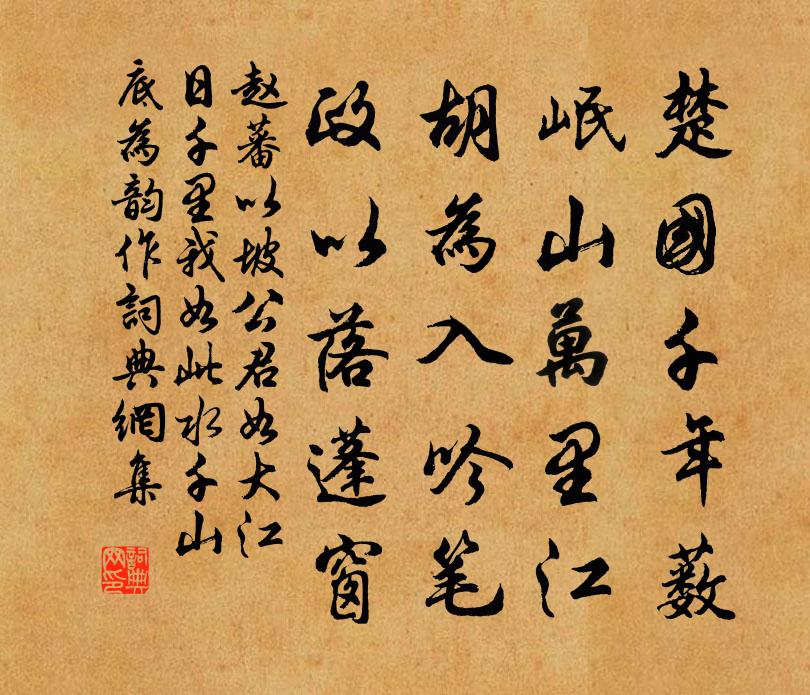 楚國千年藪
岷山萬里江
胡為入吟笔
政以落蓬窗
赵蕃以坡公君如大江
日千里我如此水千山
底為韵作詞典網集
詞典網印